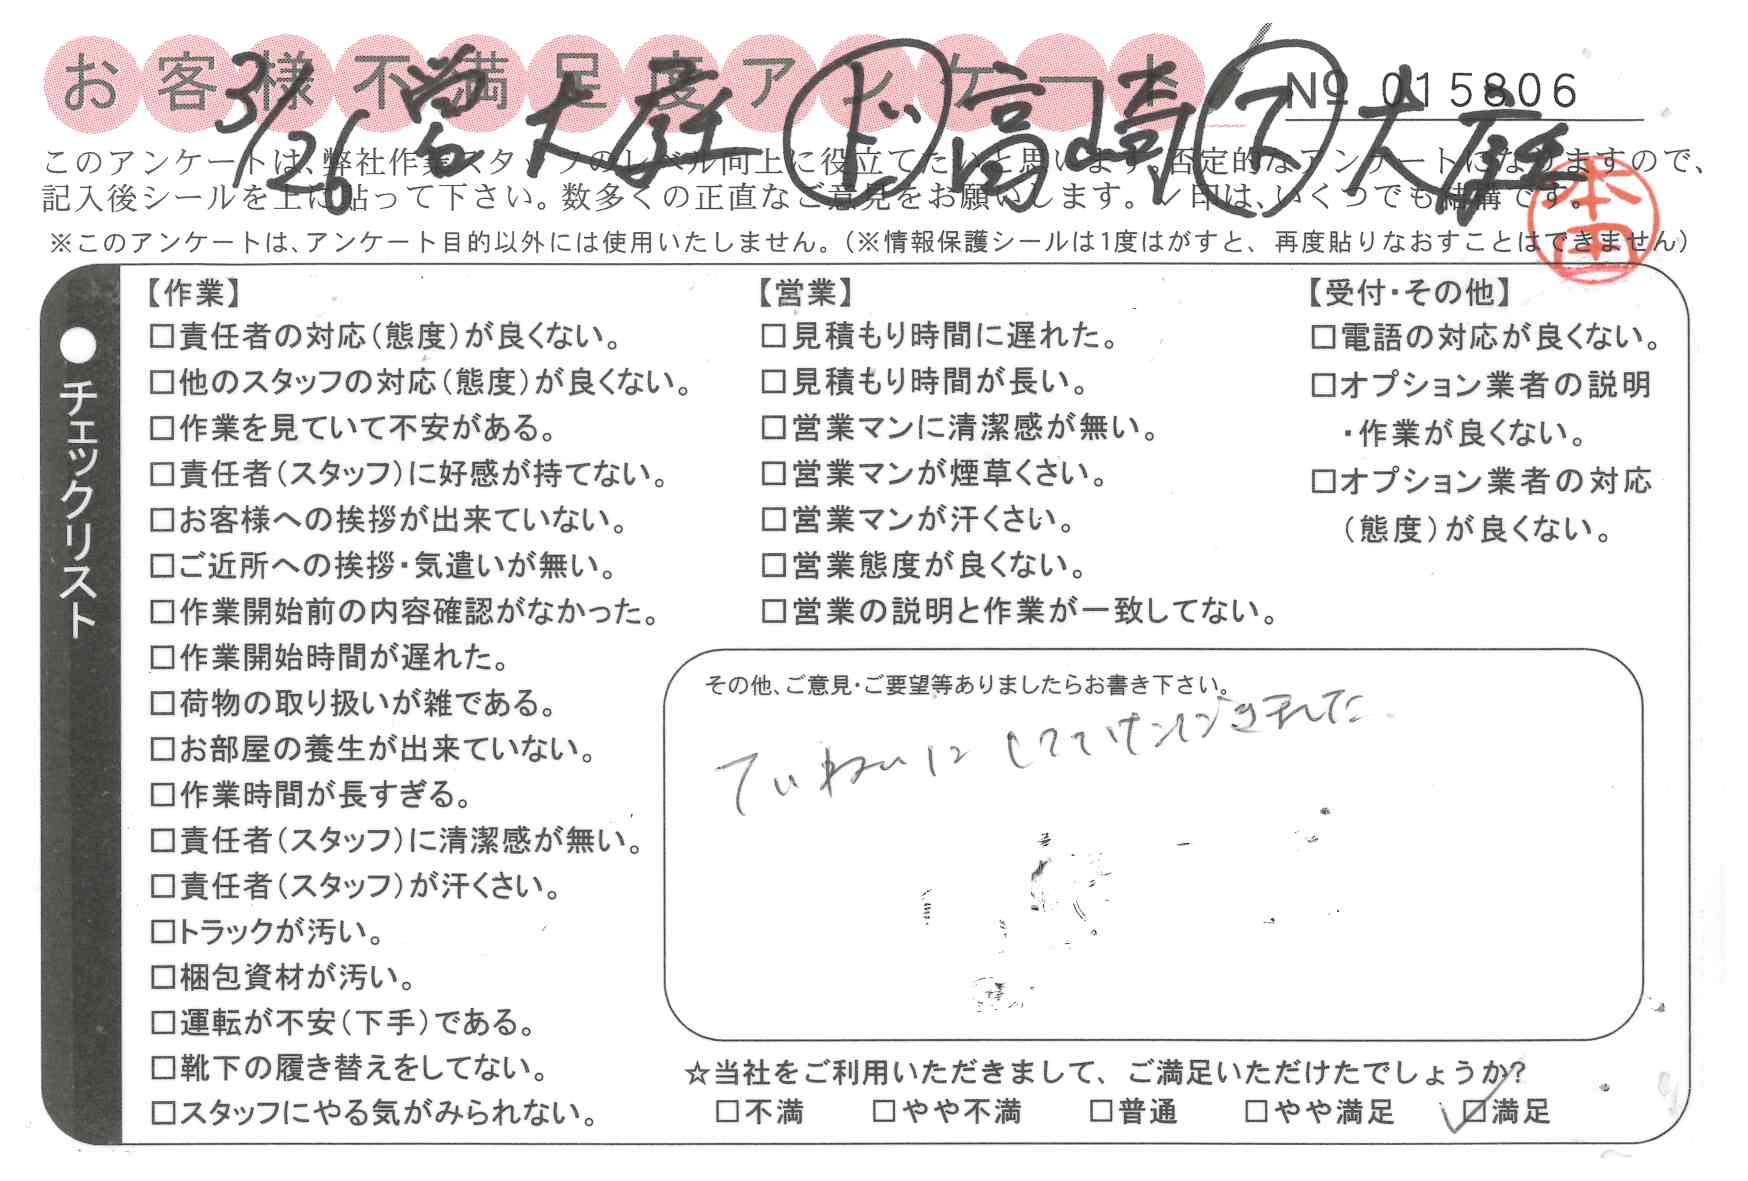 お客様不満足度アンケート
3/26 営 大庭 ド 高崎 ス 大庭
№ 015806
このアンケートは、弊社作業スタッフのレベル向上に役立てたいと思います。否定的なアンケートになりますので、
記入後シールを上に貼って下さい。数多くの正直なご意見をお願いします。レ印は、いくつでも結構です。
本田
※このアンケートは、アンケート目的以外には使用いたしません。（※情報保護シールは1度はがすと、再度貼りなおすことはできません）
●チェックリスト
【作業】
□責任者の対応（態度）が良くない。
□他のスタッフの対応（態度）が良くない。
□作業を見ていて不安がある。
□責任者（スタッフ）に好感が持てない。
□お客様への挨拶が出来ていない。
□ご近所への挨拶・気遣いが無い。
□作業開始前の内容確認がなかった。
□作業開始時間が遅れた。
□荷物の取り扱いが雑である。
□お部屋の養生が出来ていない。
□作業時間が長すぎる。
□責任者（スタッフ）に清潔感が無い。
□責任者（スタッフ）が汗くさい。
□トラックが汚い。
□梱包資材が汚い。
□運転が不安（下手）である。
□靴下の履き替えをしてない。
□スタッフにやる気がみられない。
【営業】
□見積もり時間に遅れた。
□見積もり時間が長い。
□営業マンに清潔感が無い。
□営業マンが煙草くさい。
□営業マンが汗くさい。
□営業態度が良くない。
□営業の説明と作業が一致してない。
【受付・その他】
□電話の対応が良くない。
□オプション業者の説明
・作業が良くない。
□オプション業者の対応
（態度）が良くない。
その他、ご意見・ご要望等ありましたらお書き下さい。
ていねいにしていただきました
☆当社をご利用いただきまして、ご満足いただけたでしょうか?
□不満 □やや不満 □普通 □やや満足 ☑満足